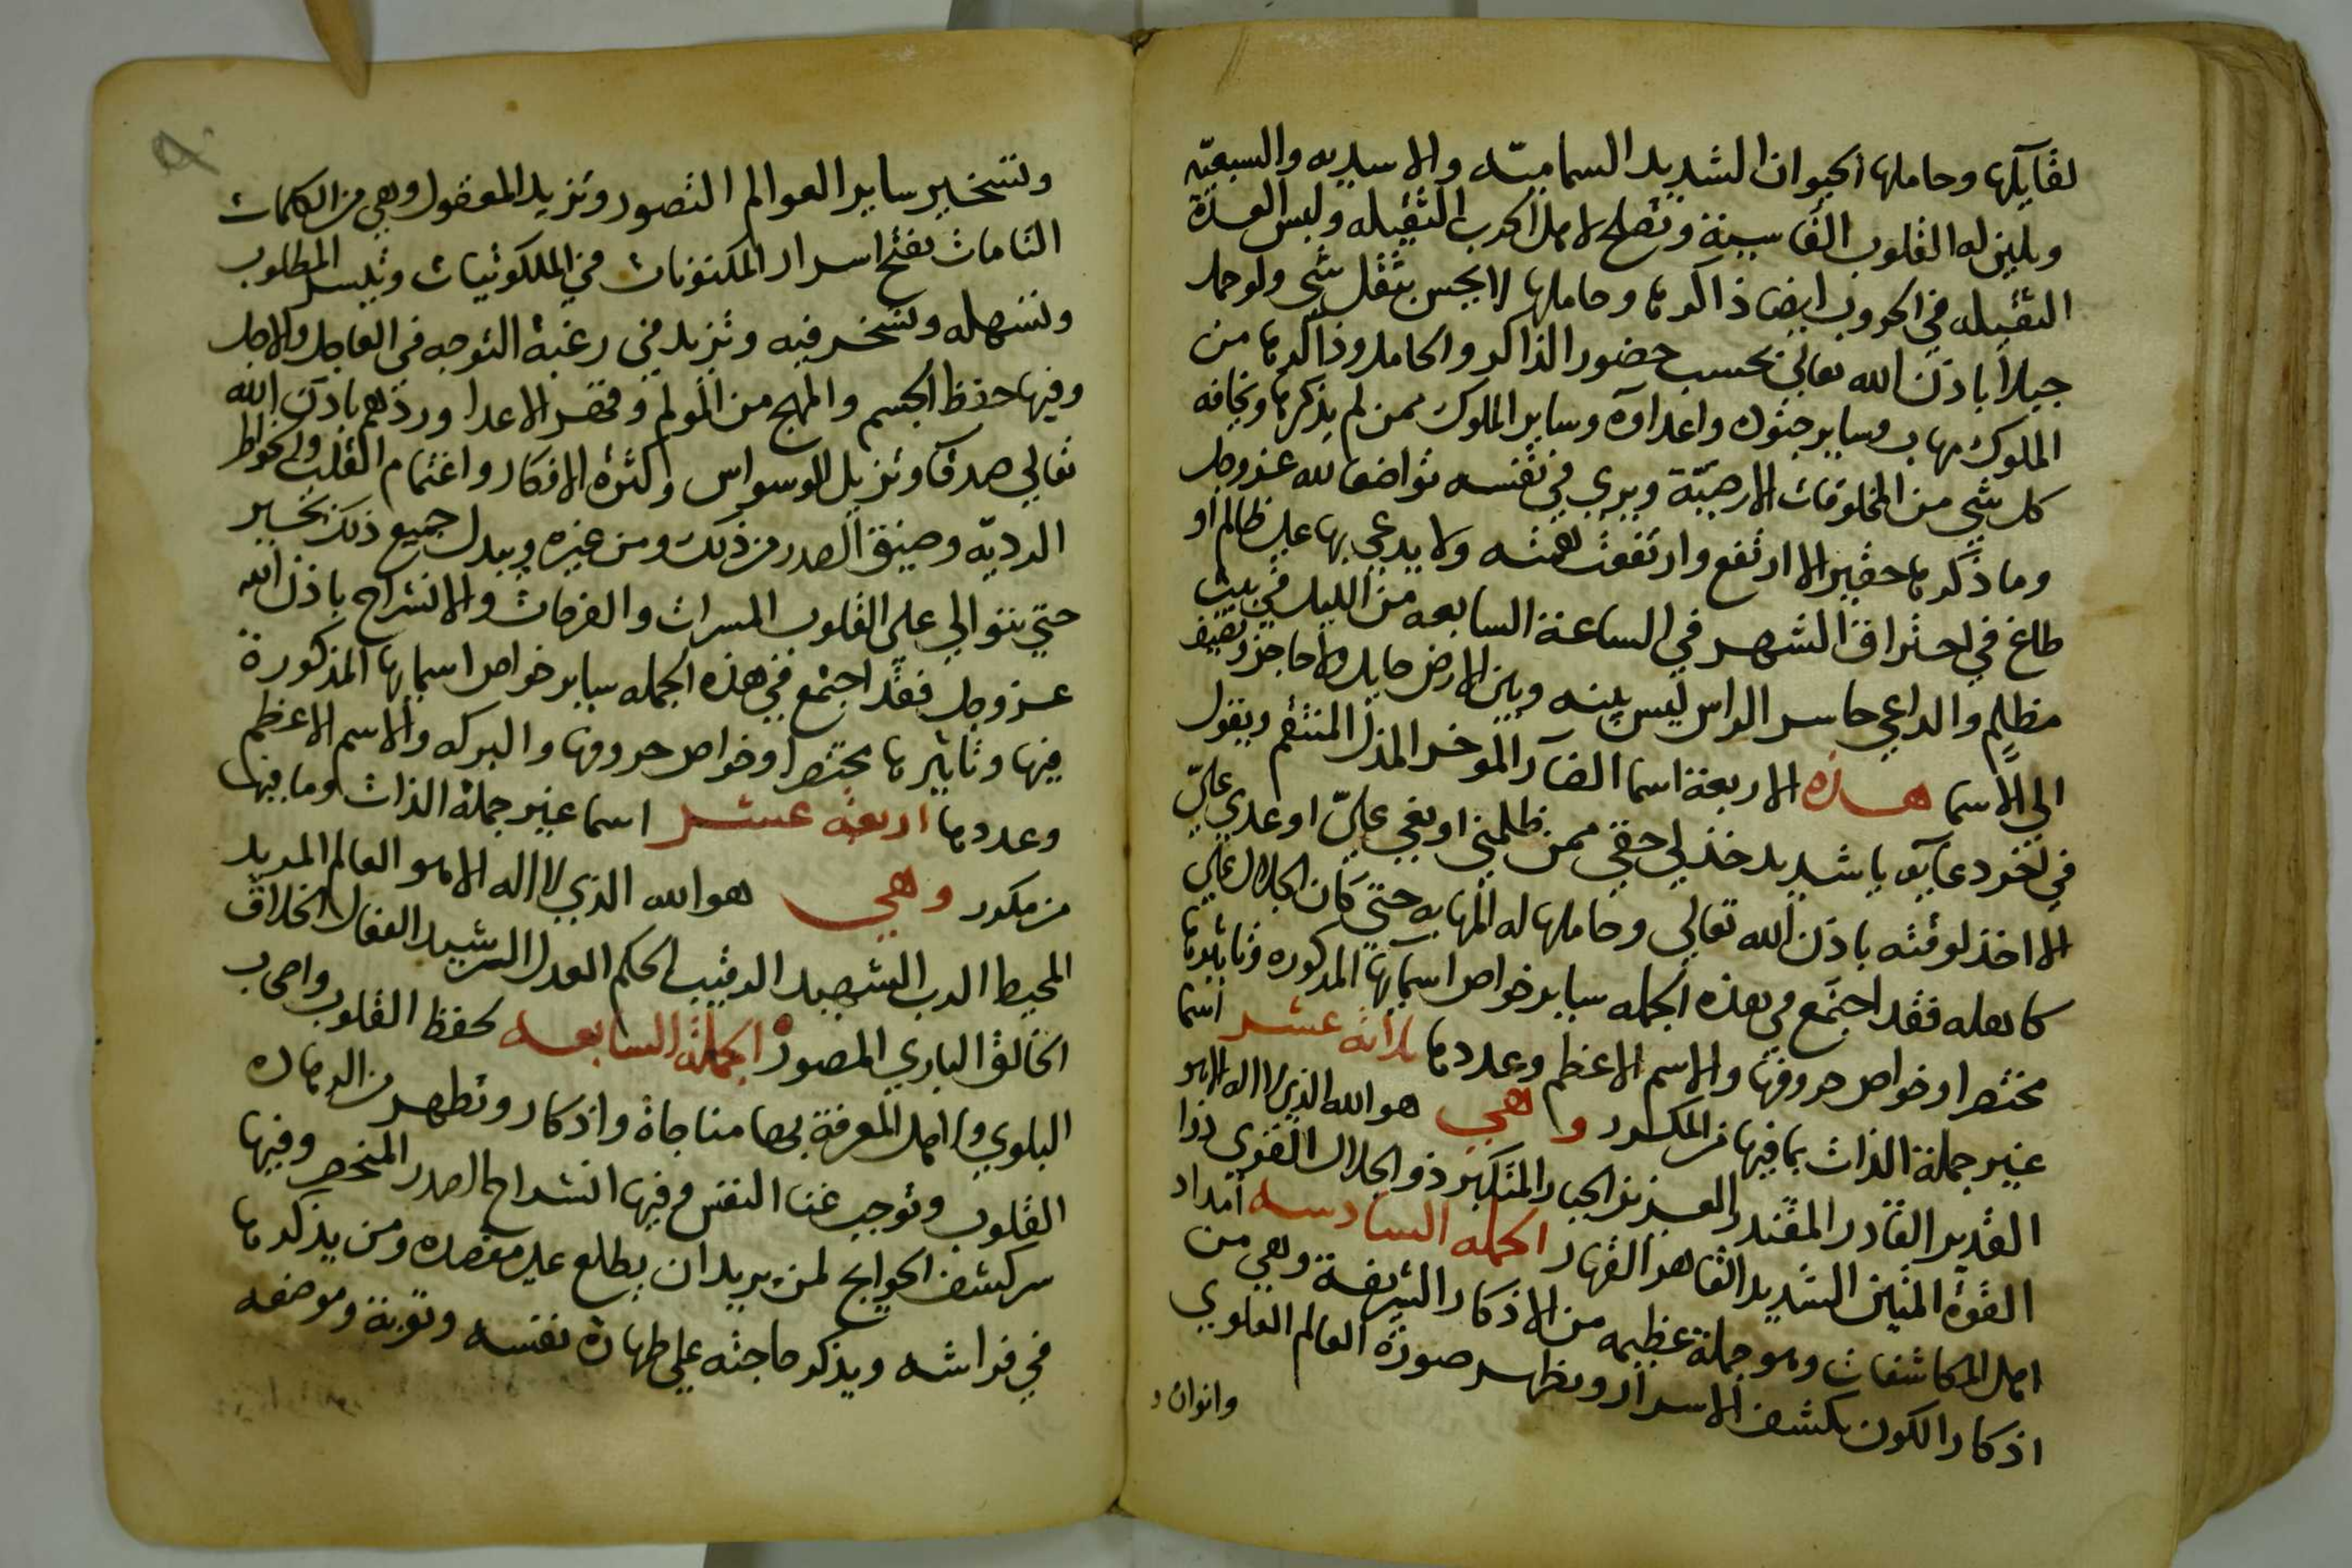 لقايلها وحاملها الحيوان الشديد السامية والاسديه والسبعيّه
ويلين له القلوب القاسية وتصلح لاهل الحرب الثقيله ولبس العدة
الثقيله في الحروب ايضا ذاكرها وحاملها لا يحس بثقل شي ولو حمل
جبلاً باذن الله تعالى بحسب حضور الذاكر والحامل وذاكرها من
الملوك مهاب وساير جنوده واعداوه وساير الملوك ممن لم يذكرها ويخافه
كل شي من المخلوقات الارضيّة ويري في نفسه تواضعا لله عز وجل
وما ذكرها حقير الا ارتفع وارتفعت همته ولا يدعي بها علي ظالم او
طاغ في احتراق الشهر في الساعة السابعه من الليل في بيت
مظلم والداعي حاسر الراس ليس بينه وبين الارض حايل ولا حاجز ويضيف
الي الاسما هذه الاربعة اسما الضار الموخر المذل المنتقم ويقول
في اخر دعايه يا شديد خذ لي حقي ممن ظلمني او بغي عليّ او عدي عليّ
الا اخذ لوقته باذن الله تعالي وحاملها له المهابه حتي كان الجلال علي
كاهله فقد اجتمع في هذه الجمله ساير خواص اسمايها المذكوره وتاثيرها
مختصرا وخواص حروفها والاسم الاعظم وعددها ثلاثة عشر اسما
غير جملة الذات بما فيها من المكرر وهي هو الله الذي لا اله الا هو
القدير القادر المقتدر العزيز الجبار المتكبر ذو الجلال القوي ذوا
القوة المتين الشديد القاهر القهار الجمله السادسه امداد
اهل المكاشفات وهو جملة عظيمه من الاذكار الشريفة وهي من
اذكار الكون بكشف الاسرار ويظهر صورة العالم العلوي
وانوار
وتسخير ساير العوالم التصور وتزيد المعقول وهي من الكلمات
التامات يفتح اسرار المكنونات في الملكوتيات وتيسر المطلوب
وتسهله وتسخر فيه وتزيد في رغبة التوجه في العاجل والاجل
وفيها حفظ الجسم والمهج من المولم وقهر الاعدا وردهم باذن الله
تعالي صدقا وتزيل الوسواس وكثرة الافكار واغتمام القلب والخواطر
الرديّه وضيق الصدر من ذلك ومن غيره ويبدل جميع ذلك بخير
حتي تتوالي علي القلوب المسرات والفرحات والانشراح باذن الله
عز وجل فقد اجتمع في هذه الجمله ساير خواص اسمايها المذكورة
فيها وتاثيرها مختصرا وخواص حروفها والبركه والاسم الاعظم
وعددها اربعة عشر اسما غير جملة الذات وما فيها
من مكرر وهي هو الله الذي لا اله الا هو العالم المريد
المحيط الرب الشهيد الرقيب الحكم العدل الرشيد الفعال الخلاق
الخالق الباري المصور الجملة السابعه لحفظ القلوب واصحاب
البلوي واهل المعرفة بها مناجاة واذكار وتطهر من الرهاده
القلوب وتوجب غنا النفس وفيها انشراح الصدر المنحصر وفيها
سر كشف الحوايج لمن يريد ان يطلع علي مقصده ومن يذكرها
في فراشه ويذكر حاجته علي طهارة نفسه وثوبة وموضعه